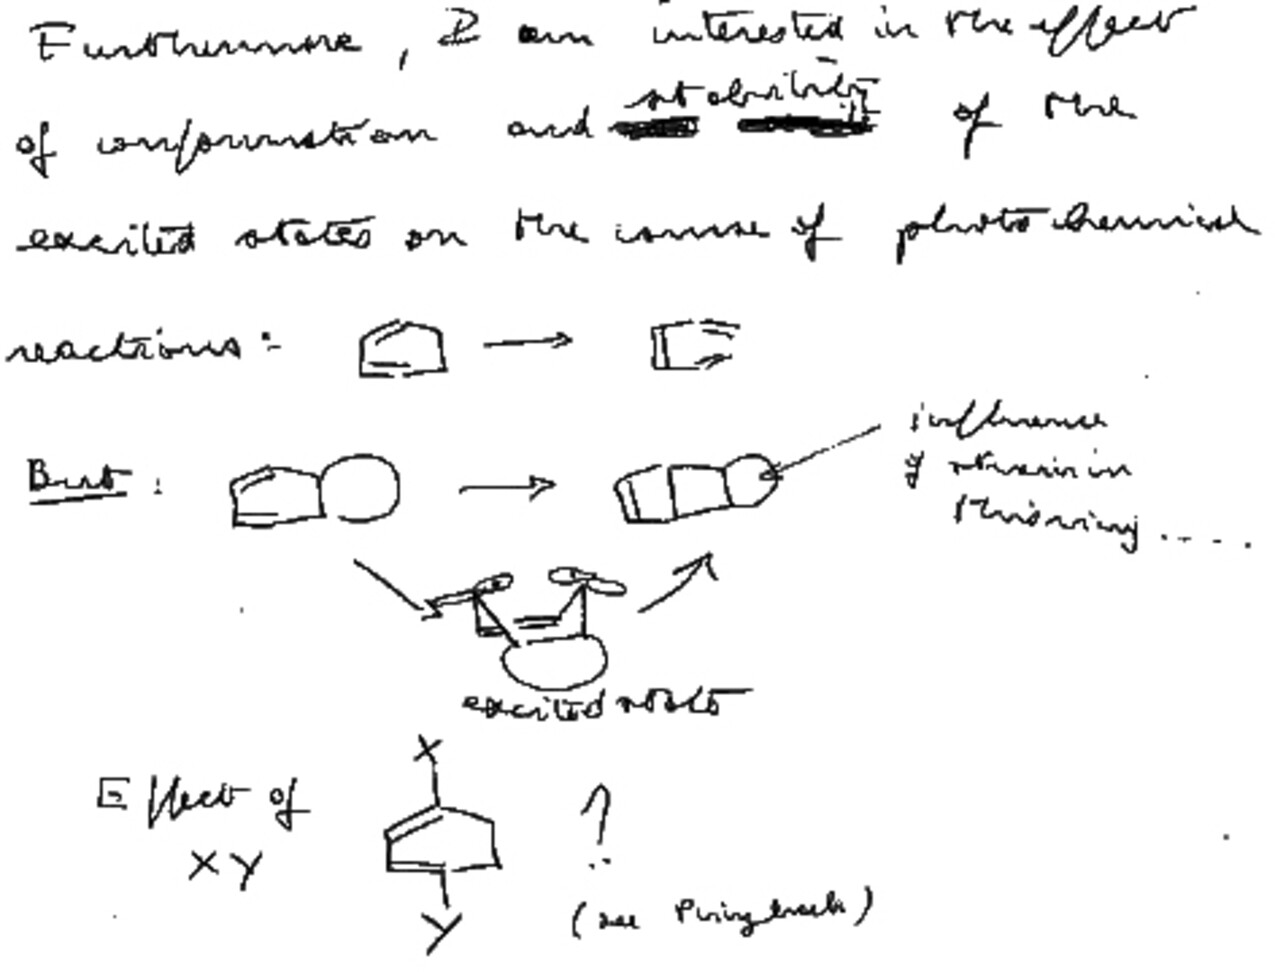 Furthermore, I am interested in the effect
of conformation and stability of the
excited states on the course of photochemical
reactions:
But:
influence
of strain in
this ring ....
excited state
X
Effect of
X Y
?
Y
(see